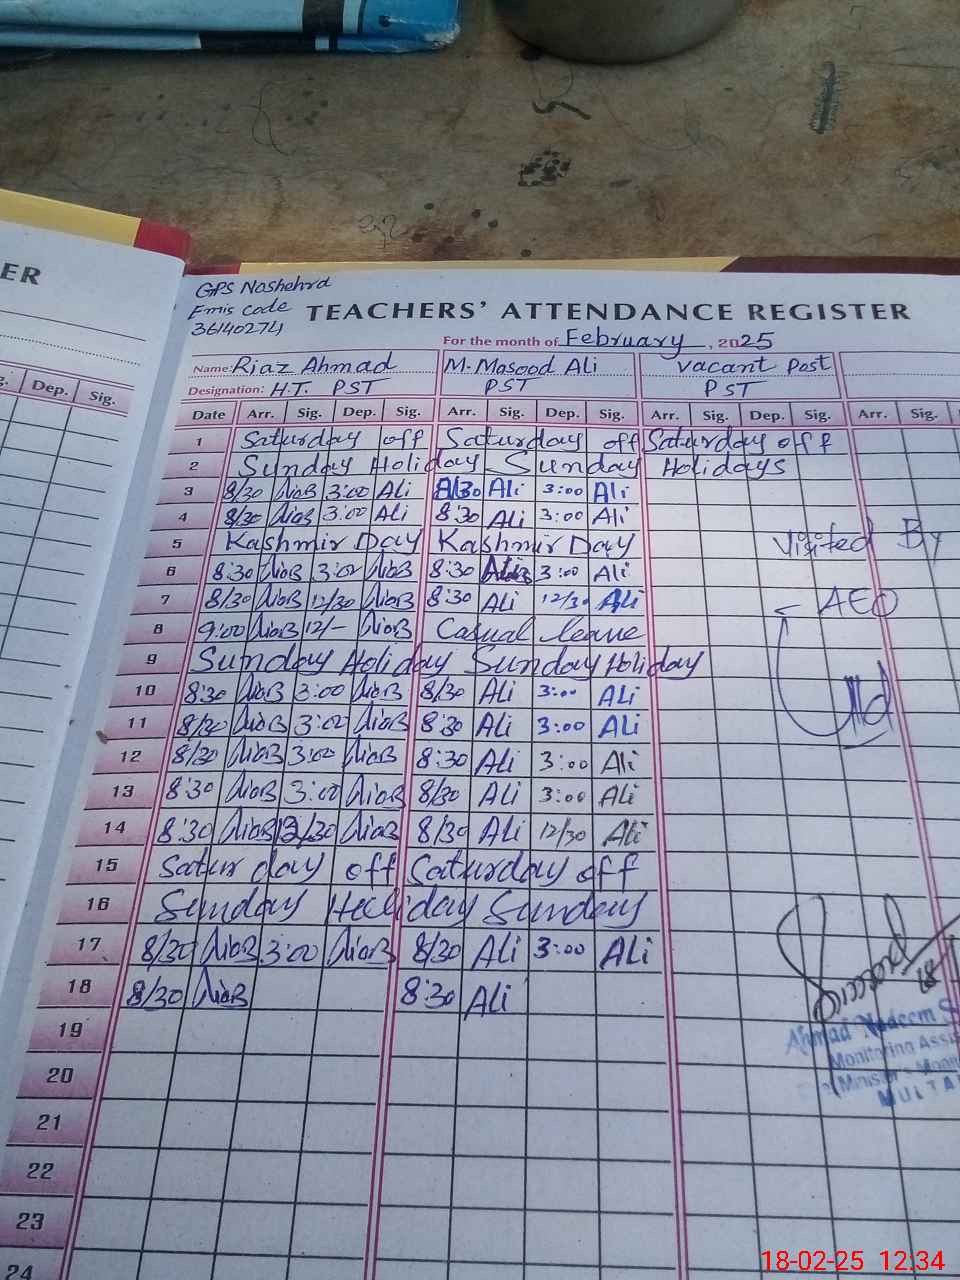 ER
GPS Nashehrd
Emis code
36140274
TEACHERS' ATTENDANCE REGISTER
For the month of February, 2025
Name: Riaz Ahmad M. Masood Ali Vacant Post
Designation: H.T. PST PST PST
Dep. Sig.
Date Arr. Sig. Dep. Sig. Arr. Sig. Dep. Sig. Arr. Sig. Dep. Sig. Arr. Sig.
1 Saturday off Saturday off Saturday off
2 Sunday Holiday Sunday Holidays
3 8/30 3:00 Ali 8/30 Ali 3:00 Ali
4 8/30 3:00 Ali 8:30 Ali 3:00 Ali
5 Kashmir Day Kashmir Day
Visited By
6 8:30 3:00 8:30 Ali 3:00 Ali
7 8/30 12/30 8:30 Ali 12/30 Ali
AEO
8 9:00 12/- Casual leave
9 Sunday Holiday Sunday Holiday
10 8:30 3:00 8/30 Ali 3:00 Ali
11 8/30 3:00 8:30 Ali 3:00 Ali
12 8/30 3:00 8:30 Ali 3:00 Ali
13 8:30 3:00 8/30 Ali 3:00 Ali
14 8:30 12/30 8/30 Ali 12/30 Ali
15 Saturday off Saturday off
16 Sunday Holiday Sunday
17 8/30 3:00 8/30 Ali 3:00 Ali
18 8/30 8:30 Ali
19
Ahmad Nadeem S
Monitoring Assi
Minister's Monit
MULTA
20
21
22
23
24
18-02-25 12:34